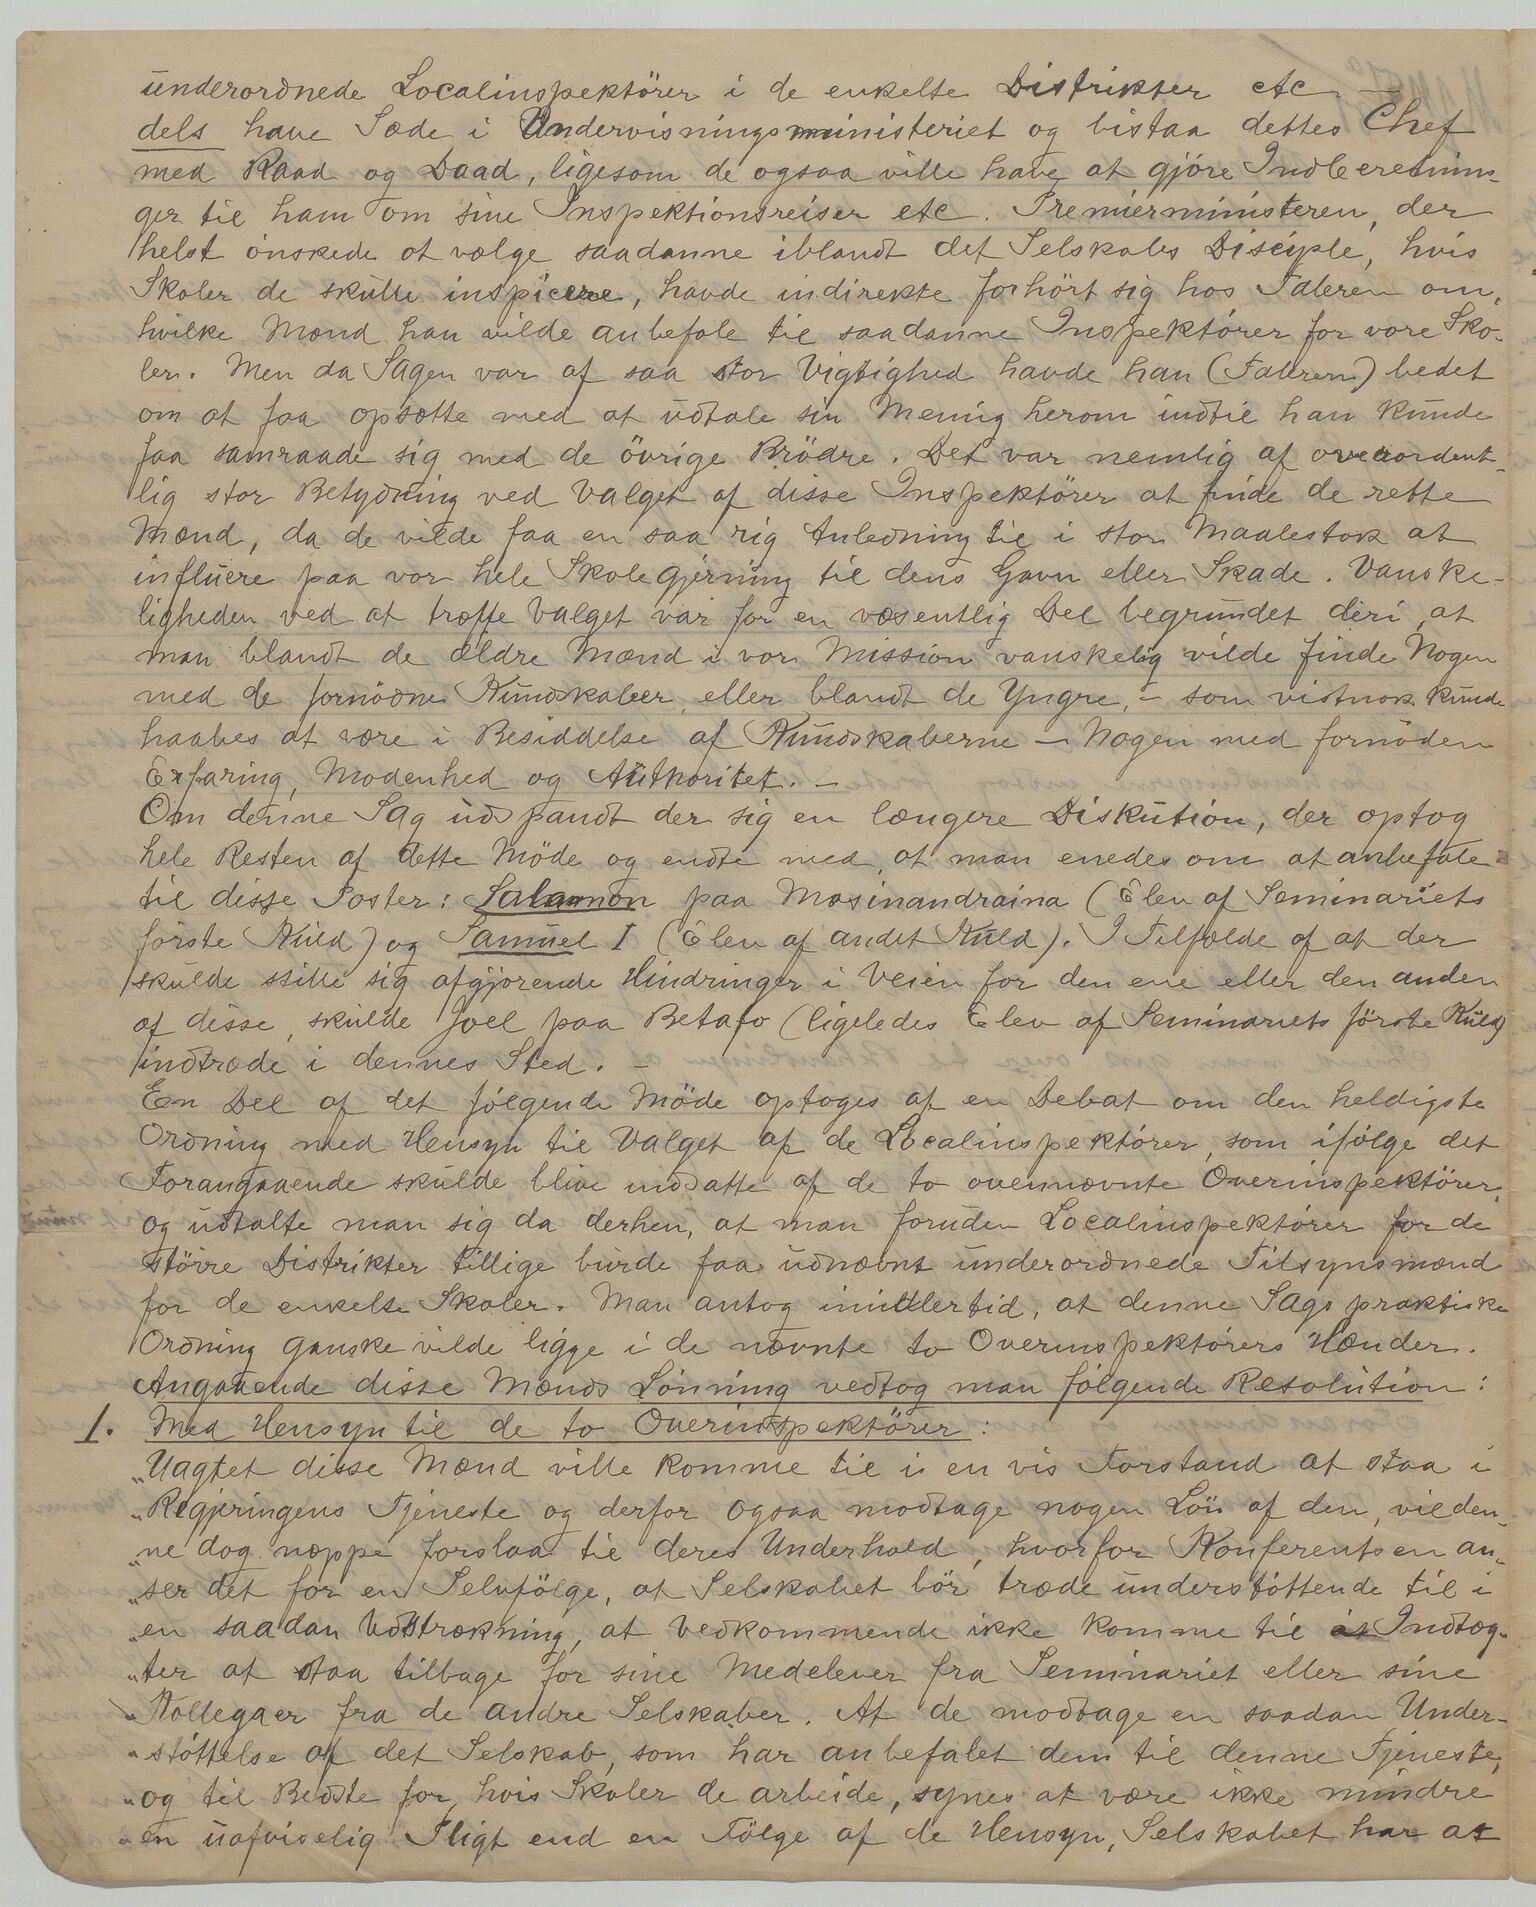 underordnede Localinspektörer i de enkelte Distrikter etc —
dels have Sæde i Undervisningsministeriet og bistaa dettes Chef
med Raad og Daad, ligesom de ogsaa ville have at gjöre Indberetnin-
ger til ham om sine Inspektionsreiser etc. Premierministeren, der
helst önskede at vælge saadanne iblandt det Selskabs Disciple, hvis
Skoler de skulle inspicere, havde indirekte forhört sig hos Taleren om,
hvilke Mænd han vilde anbefale til saadanne Inspektörer for vore Sko-
ler. Men da Sagen var af saa stor Vigtighed havde han (Taleren) bedet
om at faa opsætte med at udtale sin Mening herom indtil han kunde
faa samraade sig med de övrige Brödre. Det var nemlig af overordent-
lig stor Betydning ved Valget af disse Inspektörer at finde de rette
Mænd, da de vilde faa en saa rig Anledning til i stor Maalestok at
influere paa vor hele Skolegjerning til dens Gavn eller Skade. Vanske-
ligheden ved at træffe Valget var for en væsentlig Del begrundet deri, at
man blandt de ældre Mænd i vor Mission vanskelig vilde finde Nogen
med de fornödne Kundskaber, eller blandt de Yngre, – som vistnok kunde
haabes at være i Besiddelse af Kundskaberne — Nogen med fornöden
Erfaring, Modenhed og Authoritet. –
Om denne Sag udspandt der sig en længere Diskution, der optog
hele Resten af dette Möde og endte med, at man enedes om at anbefale
til disse Poster: Salamon paa Masinandraina (Elev af Seminariets
förste Kuld) og Samuel I (Elev af andet Kuld). I Tilfælde af at der
skulde stille sig afgjörende Hindringer i Veien for den ene eller den anden
af disse, skulde Joel paa Betafo (ligeledes Elev af Seminariets förste Kuld)
indtræde i dennes Sted. –
En Del af det fölgende Möde optoges af en Debat om den heldigste
Ordning med Hensyn til Valget af de Localinspektörer, som ifölge det
Forangaaende skulde blive indsatte af de to ovennævnte Overinspektörer,
og udtalte man sig da derhen, at man foruden Localinspektörer for de
större Distrikter tillige burde faa udnævnt underordnede Tilsynsmænd
for de enkelte Skoler. Man antog imidlertid, at denne Sags praktiske
Ordning ganske vilde ligge i de nævnte to Overinspektörers Hænder.
Angaaende disse Mænds Lönning vedtog man fölgende Resolution:
1. Med Hensyn til de to Overinspektörer:
"Uagtet disse Mænd ville komme til i en vis Forstand at staa i
"Regjeringens Tjeneste og derfor ogsaa modtage nogen Lön af den, vil den-
"ne dog næppe forslaa til deres Underhold, hvorfor Konferentsen an-
"ser det for en Selvfölge, at Selskabet bör træde understöttende til i
"en saadan Udstrækning, at Vedkommende ikke komme til at Indtæg-
"ter at staa tilbage for sine Medelever fra Seminariet eller sine
"Kollegaer fra de andre Selskaber. At de modtage en saadan Under-
"stöttelse af det Selskab, som har anbefalet dem til denne Tjeneste,
"og til Bedste for hvis Skoler de arbeide, synes at være ikke mindre
"en uafviselig Pligt end en Fölge af de Hensyn, Selskabet har at